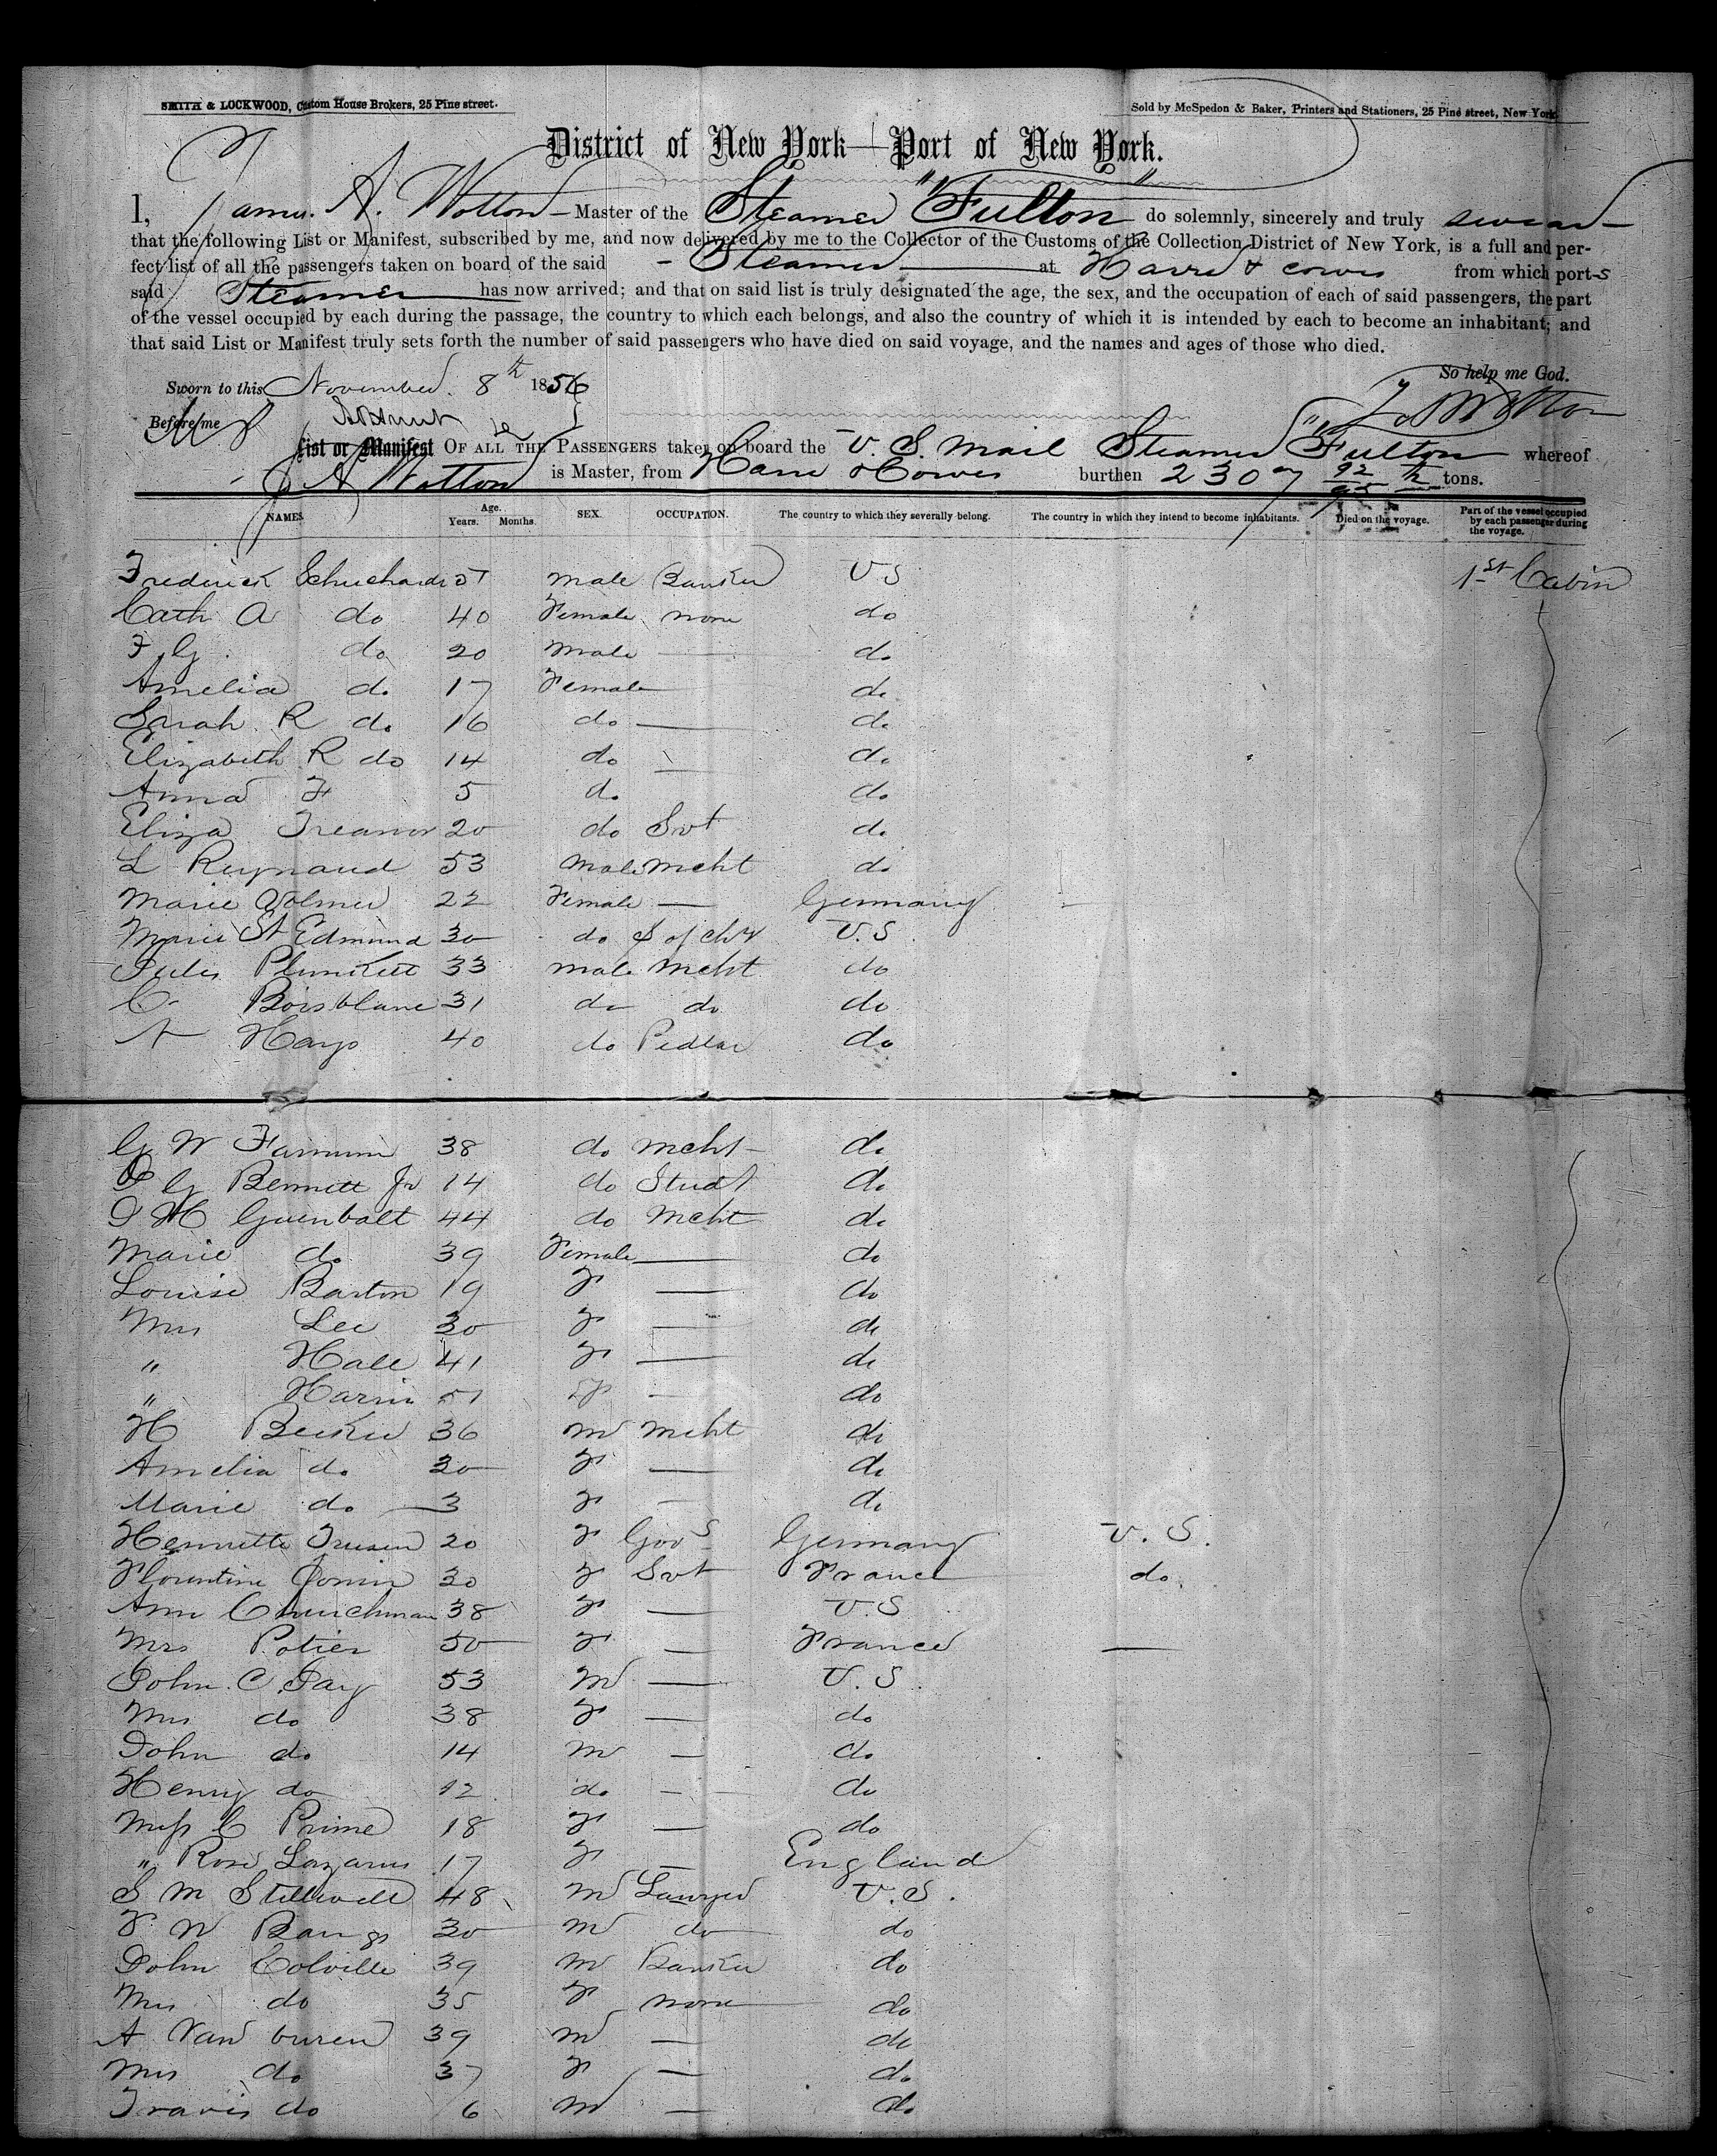 SMITH & LOCKWOOD, Custom House Brokers, 25 Pine street.
Sold by McSpedon & Baker, Printers and Stationers, 25 Pine street, New York
District of New York—Port of New York.
I, James A. Wotton — Master of the Steamer "Fulton" do solemnly, sincerely and truly swear
that the following List or Manifest, subscribed by me, and now delivered by me to the Collector of the Customs of the Collection District of New York, is a full and per-
fect list of all the passengers taken on board of the said Steamer at Havre & Cowes from which port-s
said Steamer has now arrived; and that on said list is truly designated the age, the sex, and the occupation of each of said passengers, the part
of the vessel occupied by each during the passage, the country to which each belongs, and also the country of which it is intended by each to become an inhabitant; and
that said List or Manifest truly sets forth the number of said passengers who have died on said voyage, and the names and ages of those who died.
So help me God.
Sworn to this November 8th 1856
J A Wotton
Before me
List or Manifest OF ALL THE PASSENGERS taken on board the U. S. Mail Steamer "Fulton" whereof
J A Wotton is Master, from Havre & Cowes burthen 2307 92/95 th tons.
NAMES. Age. Years. Months. SEX. OCCUPATION. The country to which they severally belong. The country in which they intend to become inhabitants. Died on the voyage. Part of the vessel occupied by each passenger during the voyage.
Frederick Schuchardt male Banker U S 1st Cabin
Cath A do 40 Female none do
F G do 20 male — do
Amelia do 17 Female do
Sarah R do 16 do — do
Elizabeth R do 14 do — do
Anna F 5 do do
Eliza Treanor 20 do Svt do
L Reynaud 53 male mcht do
Marie Volmer 22 Female — Germany
Marie St Edmund 30 do S of chy U.S
Jules Plunkett 33 male mcht do
C Boisblanc 31 do do do
A Hays 40 do Pedlar do
G W Farnum 38 do mcht do
J G Bennett Jr 14 do Studt do
44 do mcht do
Marie do 39 Female — do
Louise Barton 19 F — do
Mrs Lee 30 F — do
" Hale 41 F — do
" Harris 51 F — do
H Becker 36 m mcht do
Amelia do 30 F — do
Marie do 3 F — do
Henriette 20 F Govs Germany U. S.
Florentine 30 F Svt France do
Ann Churchman 38 F — U.S
Mrs Potier 50 F — France —
John C Jay 53 M — U.S.
Mrs do 38 F — do
John do 14 m — do
Henry do 12 do — do
Miss C Prime 18 F — do
" Rose Lazarus 17 F — England
S M Stillwell 48 M Lawyer U.S.
F W Bangs 30 M do do
John Colville 39 M Banker do
Mrs do 35 F none do
A Van buren 39 M — do
Mrs do 37 F — do
Travis do 6 M — do